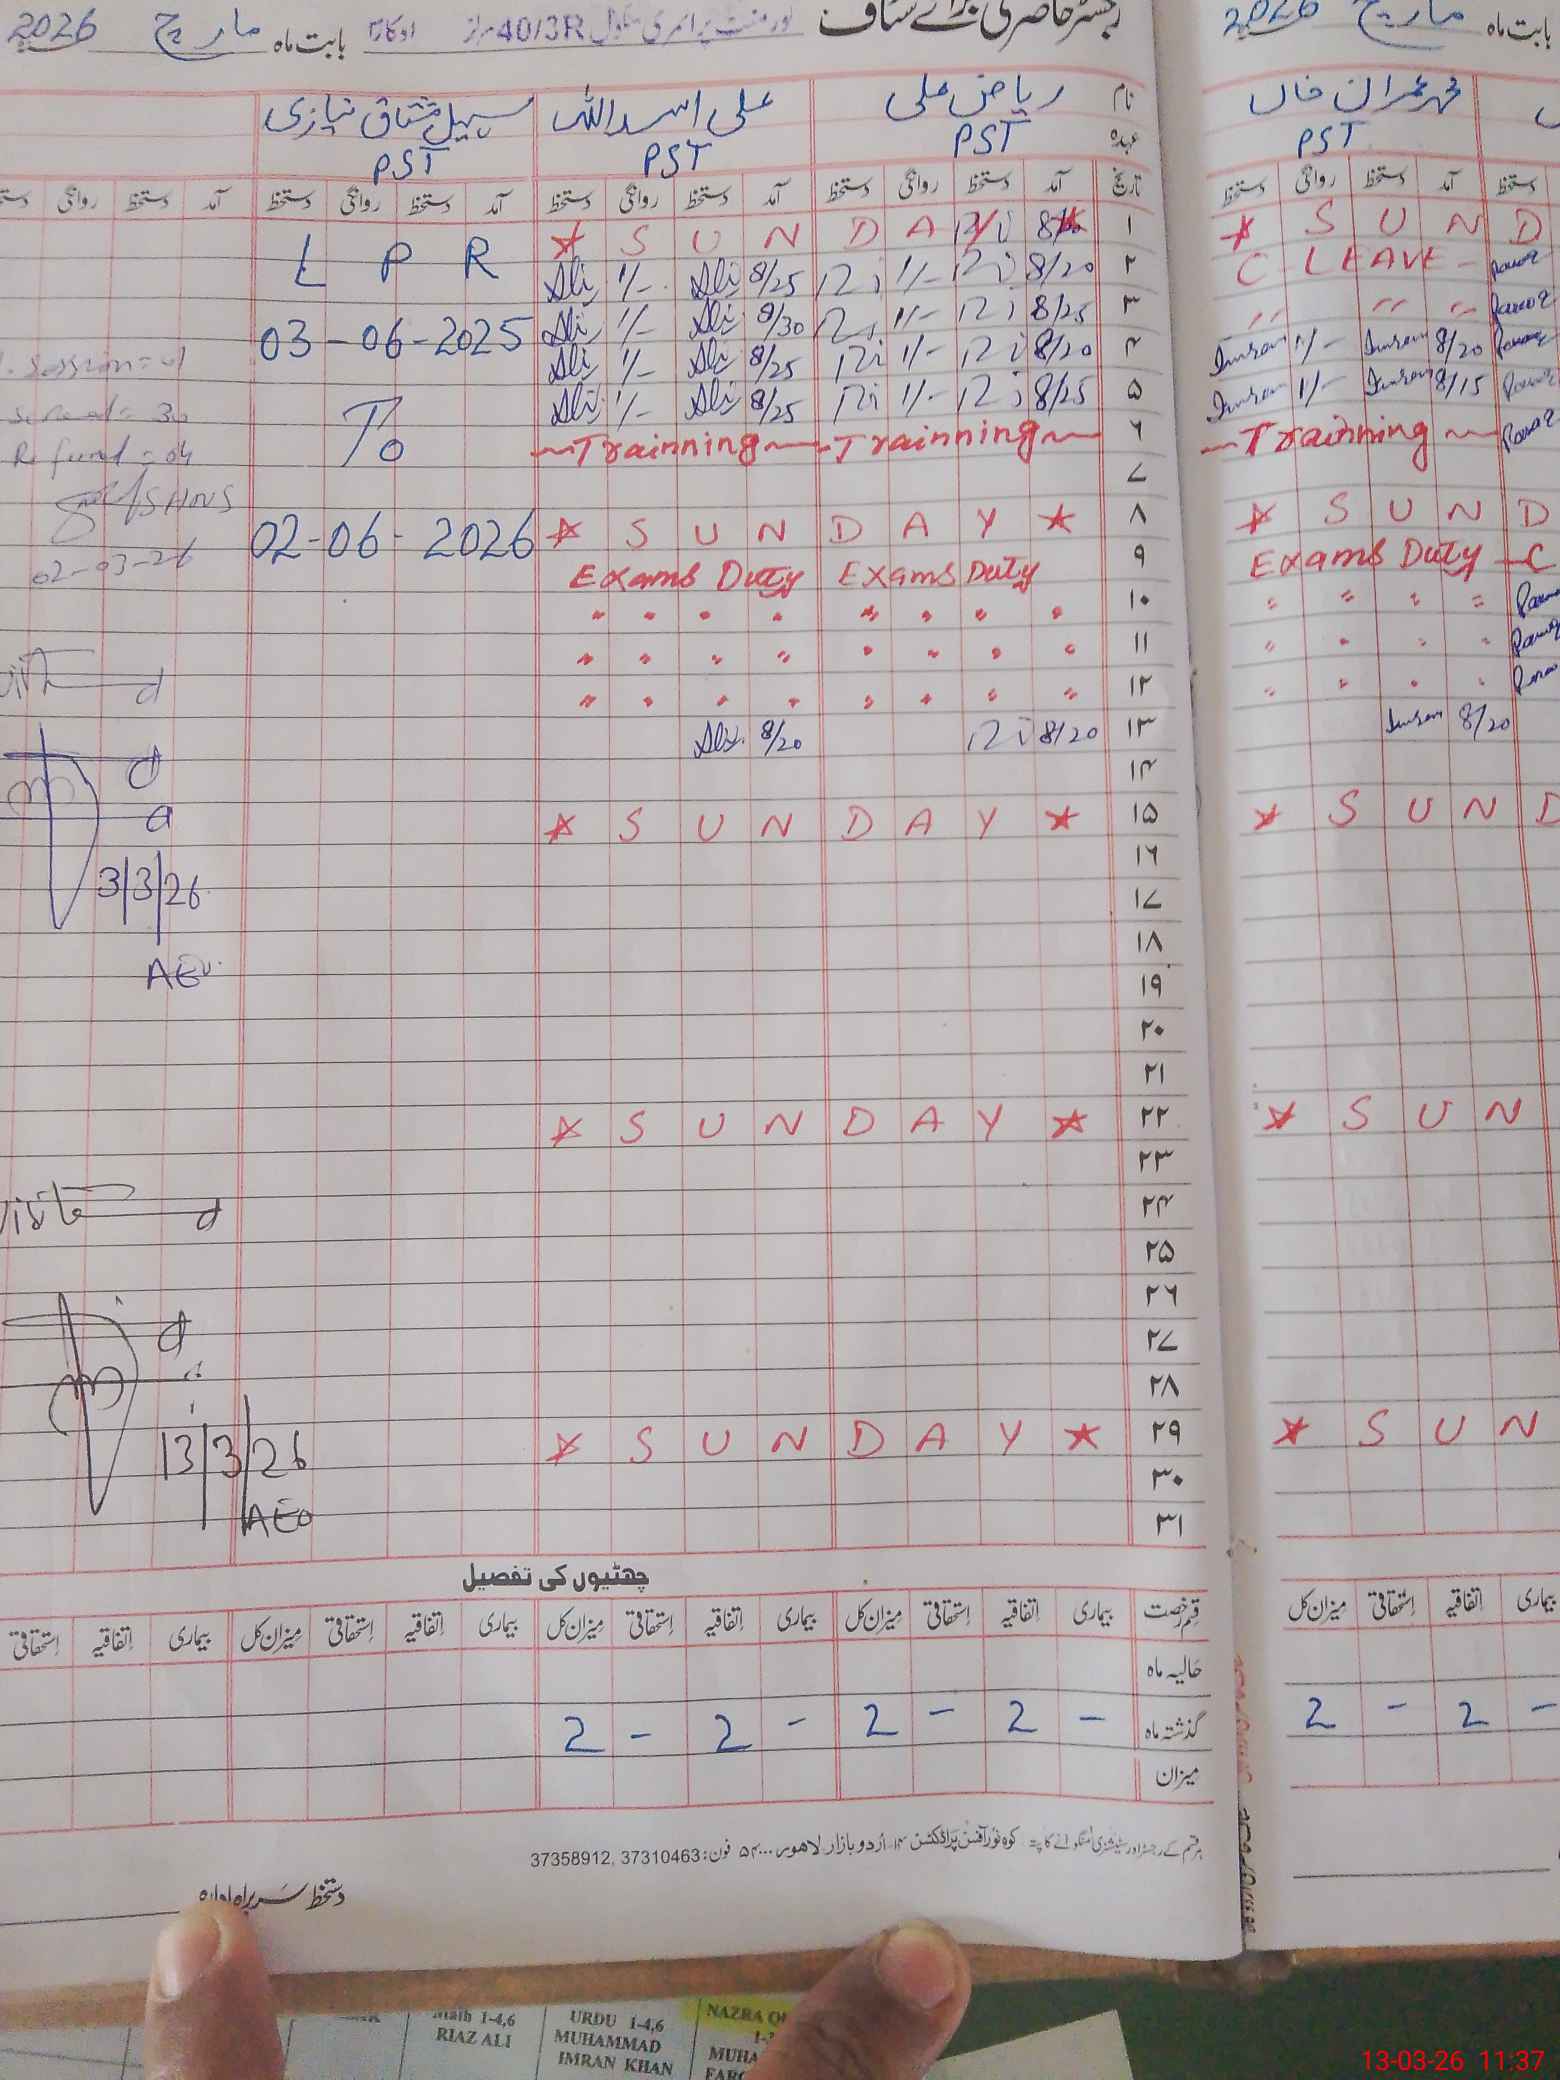 رجسٹر حاضری برائے سٹاف گورنمنٹ پرائمری سکول 40/3R اوکاڑہ بابت ماہ مارچ 2026
بابت ماہ مارچ 2026
نام ریاض علی علی اسد اللہ سہیل مشتاق نیازی
محمد عمران خاں
عہدہ PST PST PST
PST
تاریخ آمد دستخط روانگی دستخط آمد دستخط روانگی دستخط آمد دستخط روانگی دستخط آمد دستخط روانگی
دستخط روانگی دستخط آمد دستخط
۱ * S U N D A
* S U N D
۲ Ali 1/- Ali 8/25 1/- 8/20
L P R
C - LEAVE -
۳ Ali 1/- Ali 8/30 1/- 8/25
03-06-2025
۴ Ali 1/- Ali 8/25 1/- 8/20
Imran 1/- Imran 8/20
۵ Ali 1/- Ali 8/25 1/- 8/25
To
Imran 1/- Imran 8/15
۶ Trainning Trainning
Trainning
۷
۸ * S U N D A Y *
02-06-2026
* S U N D
۹ Exams Duty Exams Duty
Exams Duty - C
۱۰ " " " " " " " "
" " " "
۱۱ " " " " " " " "
" " " "
۱۲ " " " " " " " "
" " " "
۱۳ Ali 8/20 8/20
Imran 8/20
۱۴
۱۵ * S U N D A Y *
* S U N D
۱۶
۱۷
۱۸
۱۹
۲۰
۲۱
۲۲ * S U N D A Y *
* S U N
۲۳
۲۴
۲۵
۲۶
۲۷
۲۸
۲۹ * S U N D A Y *
* S U N
۳۰
۳۱
Session = 01
= 30
Refund = 04
02-03-26
3/3/26
AEO
13/3/26
AEO
چھٹیوں کی تفصیل
قسم رخصت بیماری اتفاقیہ استحقاقی میزان کل بیماری اتفاقیہ استحقاقی میزان کل بیماری اتفاقیہ استحقاقی میزان کل بیماری اتفاقیہ استحقاقی
میزان کل استحقاقی اتفاقیہ بیماری
حالیہ ماہ
گذشتہ ماہ - 2 - 2 - 2 - 2
2 - 2 -
میزان
ہر قسم کے رجسٹر اور سٹیشنری منگوانے کا پتہ: کوہ نور آفسٹ پراڈکشن ۱۴-اُردو بازار لاہور ۵۴۰۰۰ فون: 37310463, 37358912
دستخط سربراہ ادارہ
Math 1-4,6
RIAZ ALI
URDU 1-4,6
MUHAMMAD
IMRAN KHAN
NAZRA
13-03-26 11:37